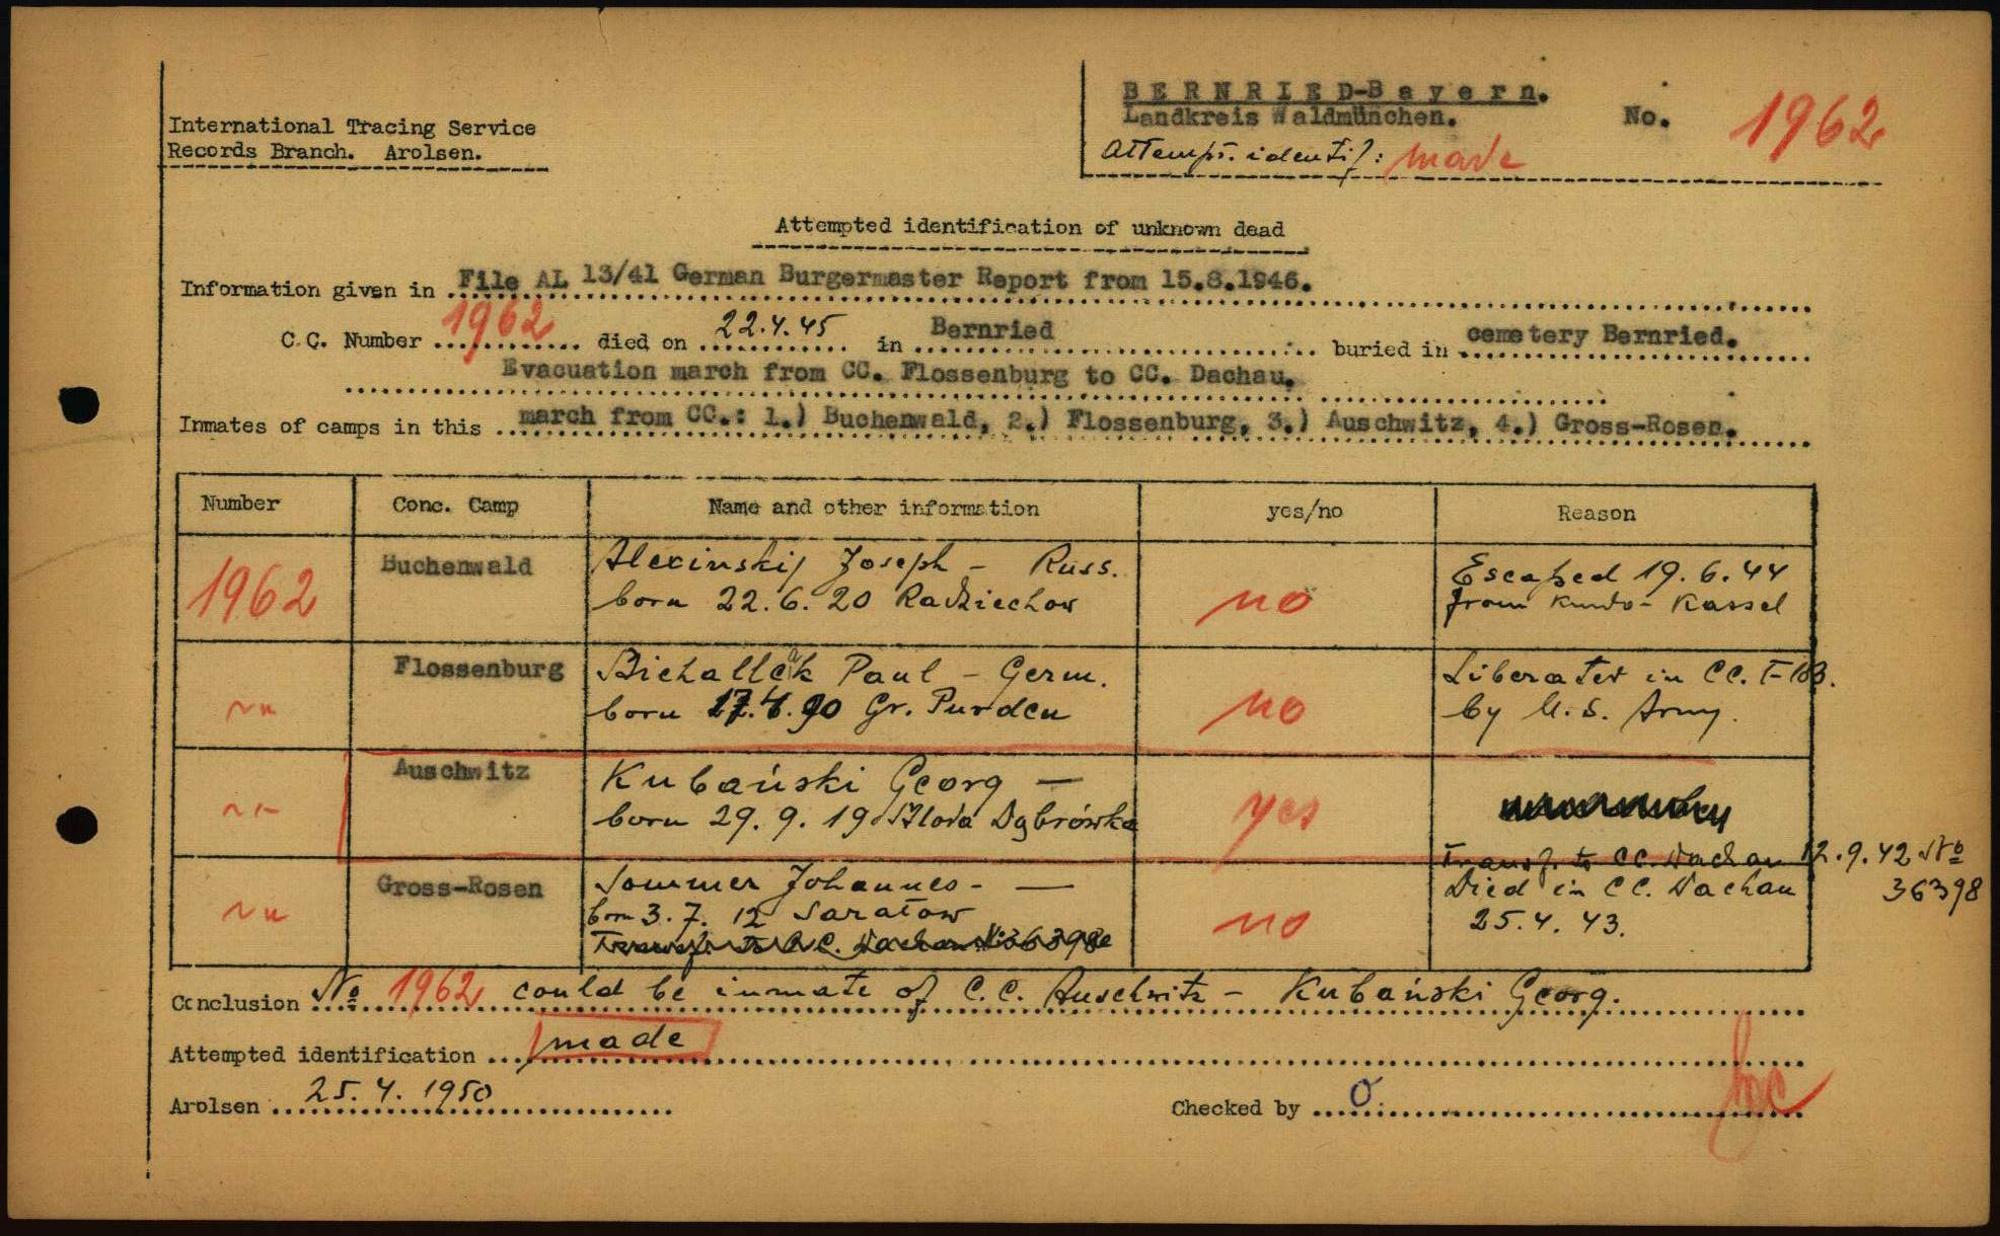 BERNRIED-Bayern.
International Tracing Service
Landkreis Waldmünchen. No. 1962
Records Branch. Arolsen.
Attempt. identif: made
Attempted identification of unknown dead
Information given in File AL 13/41 German Burgermaster Report from 15.8.1946.
C.C. Number 1962 died on 22.4.45 in Bernried buried in cemetery Bernried.
Evacuation march from CC. Flossenburg to CC. Dachau.
Inmates of camps in this march from CC.: 1.) Buchenwald, 2.) Flossenburg, 3.) Auschwitz, 4.) Gross-Rosen.
Number Conc. Camp Name and other information yes/no Reason
1962 Buchenwald Alexinskij Joseph - Russ. no Escaped 19.6.44
born 22.6.20 Radziechow from - Kassel
~" Flossenburg Paul - Germ. no Liberated in CC.
born Gr. Purden by U.S. Army.
~" Auschwitz Kubański Georg — yes
born 29.9.19 Dąbrówka
Transf. to CC. Dachau 12.9.42 No
~" Gross-Rosen Sommer Johannes - — no Died in CC. Dachau 36398
born 3.7.12 Saratow 25.4.43.
Transf. to C.C. Dachau 36398
Conclusion No 1962 could be inmate of C.C. Auschwitz - Kubański Georg.
Attempted identification made
Arolsen 25.4.1950 Checked by